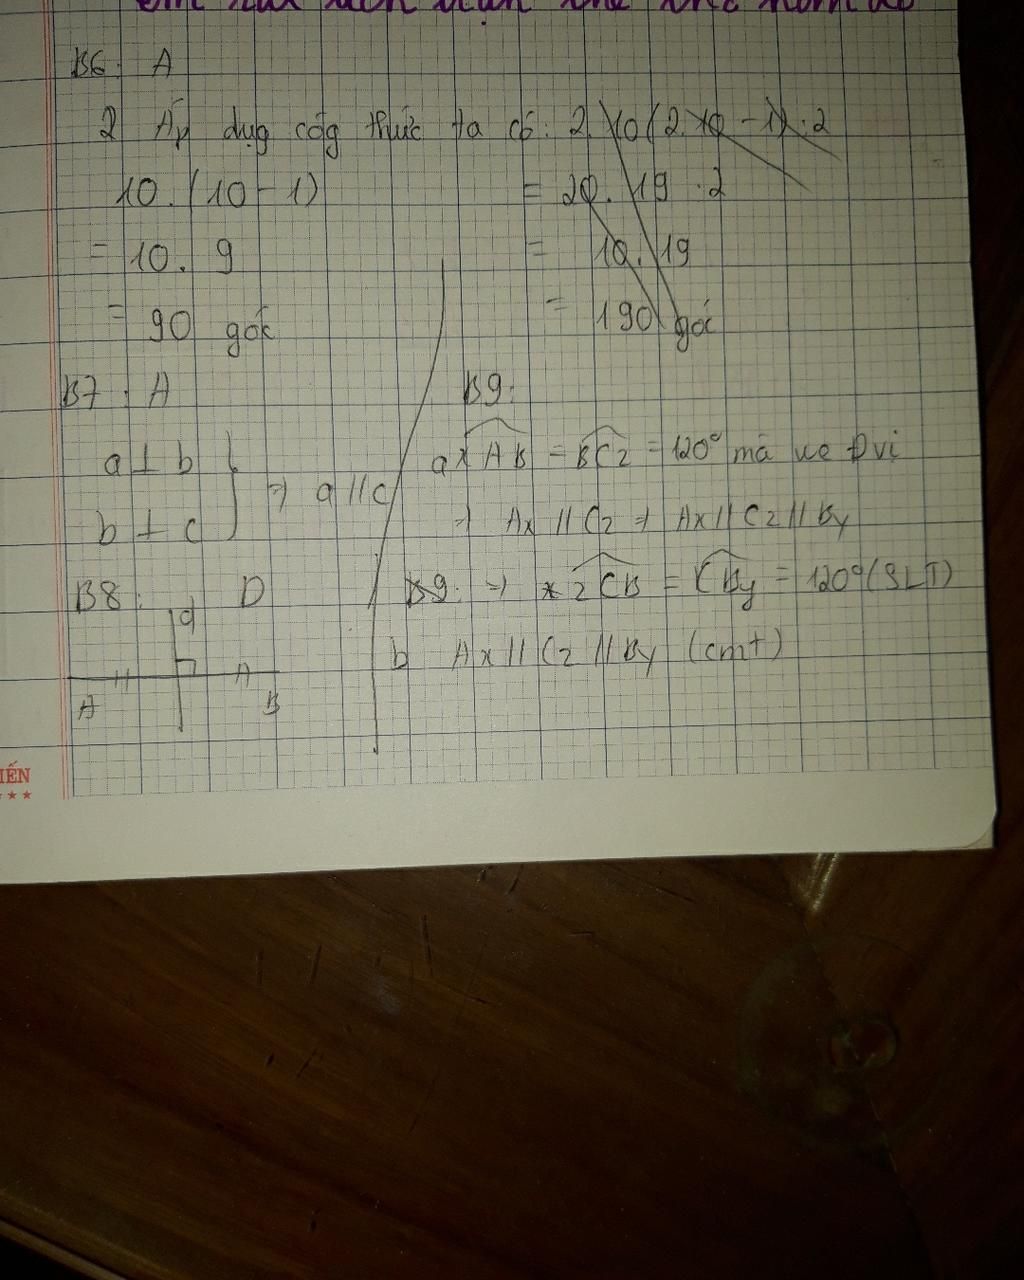 B6: A
2 Áp dụg côg thức ta có: 2.10(2.10-1):2
10.(10-1)
= 20.19:2
= 10.9
= 10.19
= 90 góc
= 190 góc
B7: A
a ⊥ b
b ⊥ c
⇒ a // c
B8: D
d
A
B
B9:
a xAB = BCz = 120° mà ve Đvị
⇒ Ax // Cz ⇒ Ax // Cz // By
B9: ⇒ zCB = CBy = 120° (SLT)
b Ax // Cz // By (cmt)
IẾN